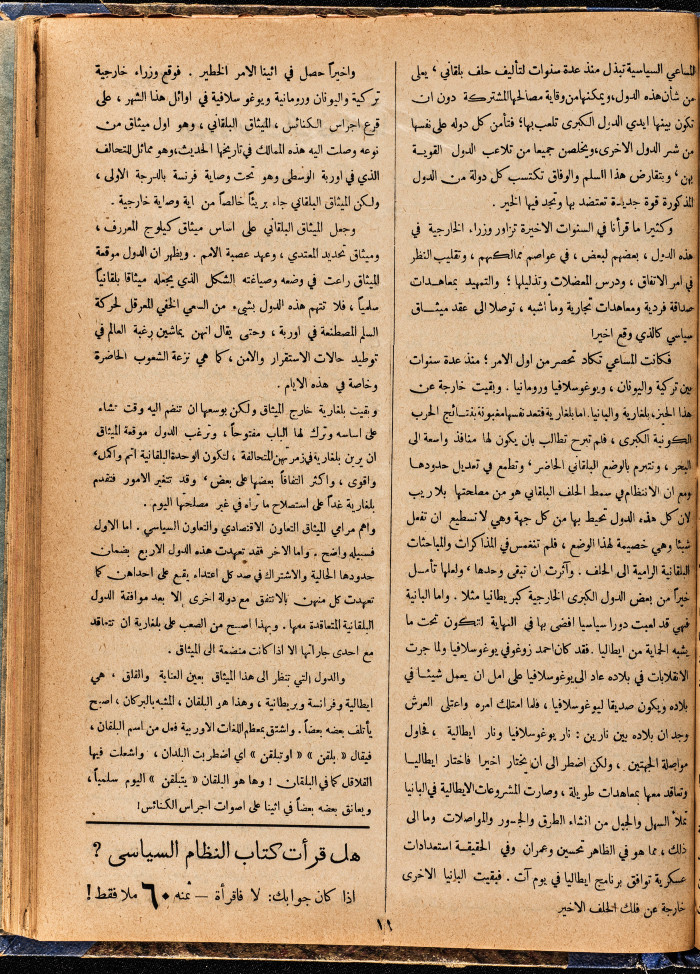 المساعي السياسية تبذل منذ عدة سنوات لتأليف حلف بلقاني ، يعلي
من شأن هذه الدول، ويمكنها من وقاية مصالحها المشتركة دون ان
تكون بينها ايدي الدول الكبرى تلعب بها؛ فتأمن كل دوله على نفسها
من شر الدول الاخرى، ويخلصن جميعا من تلاعب الدول القوية
بهن ، وبتقارض هذا السلم والوفاق تكتسب كل دولة من الدول
المذكورة قوة جديدة تعتضد بها وتجد فيها الخير .
وكثيرا ما قرأنا في السنوات الاخيرة تزاور وزراء الخارجية في
هذه الدول ، بعضهم لبعض ، في عواصم ممالكهم ، وتقليب النظر
في امر الاتفاق ، ودرس المعضلات وتذليلها ؛ والتمهيد بمعاهدات
صداقة فردية ومعاهدات تجارية وما اشبه ، توصلا الى عقد ميثاق
سياسي كالذي وقع اخيرا
فكانت المساعي تكاد تحصر من اول الامر ؛ منذ عدة سنوات
بين تركية واليونان ، ويوغوسلافيا ورومانيا . وبقيت خارجة عن
هذا الحيز، بلغارية والبانيا. اما بلغارية فتعد نفسها مغبونة بنتائج الحرب
الكونية الكبرى ، فلم تبرح تطالب بان يكون لها منافذ واسعة الى
البحر ، وتتبرم بالوضع البلقاني الحاضر ، وتطمع في تعديل حدودها
ومع ان الانتظام في سمط الحلف البلقاني هو من مصلحتها بلا ريب
لان كل هذه الدول تحيط بها من كل جهة وهي لا تسطيع ان تفعل
شيئا وهي خصيمة لهذا الوضع ، فلم تنغمس في المذاكرات والمباحثات
البلقانية الرامية الى الحلف . وآثرت ان تبقى وحدها ، ولعلها تأمل
خيراً من بعض الدول الكبرى الخارجية كبريطانيا مثلا . واما البانية
فهي قد لعبت دورا سياسيا افضى بها في النهاية لتكون تحت ما
يشبه الحماية من ايطاليا . فقد كان احمد زوغو في يوغوسلافيا ولما جرت
الانقلابات في بلاده عاد الى يوغوسلافيا على امل ان يعمل شيئا في
بلاده ويكون صديقا ليوغوسلافيا ، فلما امتلك امره واعتلى العرش
وجد ان بلاده بين نارين : نار يوغوسلافيا ونار ايطالية ، فحاول
مواصلة الجهتين ، ولكن اضطر الى ان يختار اخيرا فاختار ايطاليا
وتعاقد معها بمعاهدات طويلة ، وصارت المشروعات الايطالية في البانيا
تملأ السهل والجبل من انشاء الطرق والجسور والمواصلات وما الى
ذلك ، مما هو في الظاهر تحسين وعمران وفي الحقيقة استعدادات
عسكرية توافق برنامج ايطاليا في يوم آت . فبقيت البانيا الاخرى
خارجة عن فلك الحلف الاخير
واخيراً حصل في اثينا الامر الخطير . فوقع وزراء خارجية
تركية واليونان ورومانية ويوغوسلافية في اوائل هذا الشهر ، على
قرع اجراس الكنائس ، الميثاق البلقاني ، وهو اول ميثاق من
نوعه وصلت اليه هذه الممالك في تاريخها الحديث، وهو مماثل للتحالف
الذي في اوربة الوسطى وهو تحت وصاية فرنسة بالدرجة الاولى ،
ولكن الميثاق البلقاني جاء بريئاً خالصاً من اية وصاية خارجية .
وجعل الميثاق البلقاني على اساس ميثاق كيلوج المعروف ،
وميثاق تحديد المعتدي ، وعهد عصبة الامم . ويظهر ان الدول موقعة
الميثاق راعت في وضعه وصياغته الشكل الذي يجعله ميثاقا بلقانياً
سلمياً ، فلا تتهم هذه الدول بشيء من السعي الخفي المعرقل لحركة
السلم المصطنعة في اوربة ، وحتى يقال انهن يماشين رغبة العالم في
توطيد حالات الاستقرار والامن ، كما هي نزعة الشعوب الحاضرة
وخاصة في هذه الايام .
وبقيت بلغارية خارج الميثاق ولكن بوسعها ان تنضم اليه وقت تشاء
على اساسه وترك لها الباب مفتوحاً ، وترغب الدول موقعة الميثاق
ان يرين بلغارية في زمرتهن المتحالفة ، لتكون الوحدة البلقانية اتم واكمل ،
واقوى ، واكثر التفافاً بعضها على بعض ، وقد تتغير الامور فتقدم
بلغارية غداً على استصلاح ما تراه في غير مصلحتها اليوم .
واهم مرامي الميثاق التعاون الاقتصادي والتعاون السياسي . اما الاول
فسبيله واضح . واما الاخر فقد تعهدت هذه الدول الاربع بضمان
حدودها الحالية والاشتراك في صد كل اعتداء يقع على احداهن كما
تعهدت كل منهن بالا تتفق مع دولة اخرى إلا بعد موافقة الدول
البلقانية المتعاقدة معها . وبهذا اصبح من الصعب على بلغارية ان تتعاقد
مع احدى جاراتها الا اذا كانت منضمة الى الميثاق .
والدول التي تنظر الى هذا الميثاق بعين العناية والقلق ، هي
ايطالية وفرنسة وبريطانية ، وهذا هو البلقان ، المشبه بالبركان ، اصبح
يأتلف بعضه بعضاً . واشتق بمعظم اللغات الاوربية فعل من اسم البلقان ،
فيقال « بلقن » « اوتبلقن » اي اضطربت البلدان ، واشعلت فيها
القلاقل كما في البلقان ! وها هو البلقان « يتبلقن » اليوم سلمياً ،
ويعانق بعضه بعضاً في اثينا على اصوات اجراس الكنائس!
هل قرأت كتاب النظام السياسى ؟
اذا كان جوابك: لا فاقرأة — ثمنه ٦٠ ملا فقط !
١٢